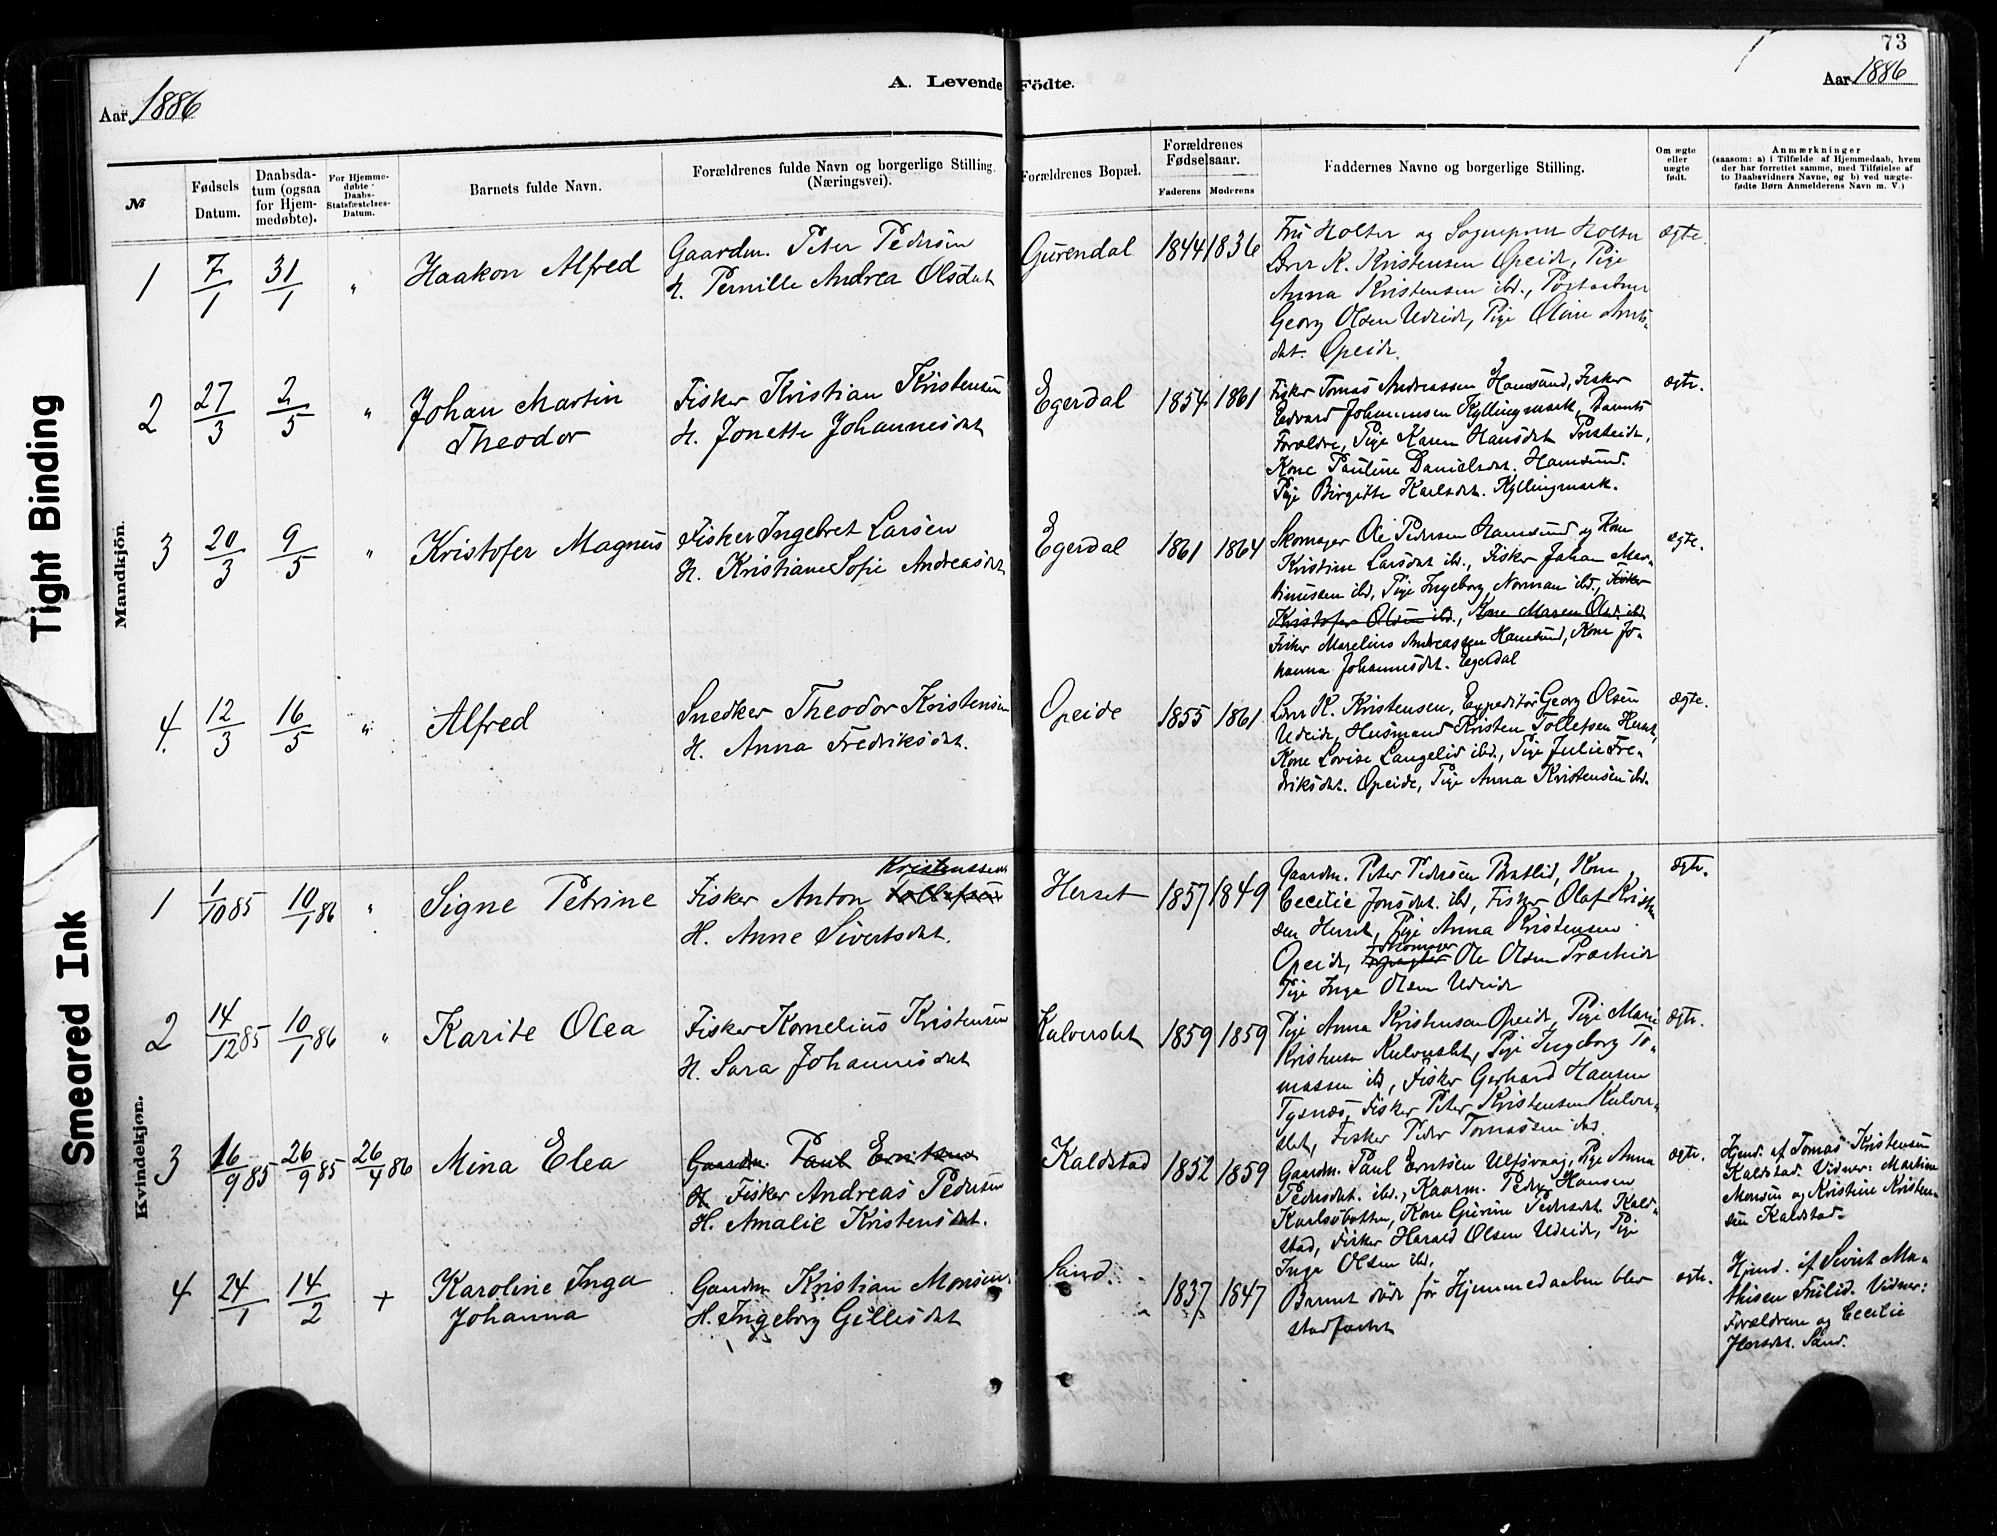 73
A. Levende Födte.
Aar 1886
Aar 1886
№
Fødsels Datum.
Daabsdatum (ogsaa for Hjemmedøbte).
For Hjemmedøbte Daabs-Statsfæstelses-Datum.
Barnets fulde Navn.
Forældrenes fulde Navn og borgerlige Stilling. (Næringsvei).
Forældrenes Bopæl.
Forældrenes Fødselsaar.
Faderens Moderens
Faddernes Navne og borgerlige Stilling.
Om ægte eller uægte født.
Anmærkninger
(saasom: a) i Tilfælde af Hjemmedaab, hvem
der har forrettet samme, med Tilføielse af
to Daabsvidners Navne, og b) ved uægte-
fødte Børn Anmelderens Navn m. V.)
Tight Binding
Smeared Ink
Mandkjön.
1 7/1 31/1 " Haakon Alfred
Gaardm. Peter Pedersen
H. Pernille Andrea Olsdat
Gurendal 1844 1836
Fru Holter og Sogneprest Holter
Lærer K. Kristensen Opeide, Pige
Anna Kristensen ibd., Postaabner
Georg Olsen Udeide, Pige Oline Arnts-
dat. Opeide.
ægte.
2 27/3 2/5 " Johan Martin
Theodor
Fisker Kristian Kristensen
H. Jonette Johannesdat
Egerdal 1854 1861
Fisker Tomas Andreassen Hamsund, Fisker
Edvard Johannesen Kyllingmark, Barnets
Forældre, Pige Karen Hansdat Presteide,
Kone Pauline Danielsdat. Hamsund.
Pige Birgitte Karlsdat. Kyllingmark.
ægte.
3 20/3 9/5 " Kristofer Magnus
Fisker Ingebret Larsen
H. Kristiane Sofie Andreasdat
Egerdal 1861 1864
Skomager Ole Pedersen Hamsund og Kone
Kristine Larsdat ibd., Fisker Johan Mar-
tinussen ibd, Pige Ingeborg Norman ibd., Fisker
Kristofer Olsen ibd., Kone Maren Olsd. ibd
Fisker Marelius Andreassen Hamsund, Kone Jo-
hanna Johannesdat. Egerdal
ægte.
4. 12/3 16/5 " Alfred
Snedker Theodor Kristensen
H. Anna Fredriksdat.
Opeide 1855 1861
Lærer K. Kristensen, Expeditör Georg Olsen
Udeide, Husmand Kristen Tollefsen Herset,
Kone Lovise Langelid ibd., Pige Julie Fre-
driksdat. Opeide, Pige Anna Kristensen ibd.
ægte.
Kvindekjøn.
1 1/10 85 10/1 86 " Signe Petrine
Kristenssen
Fisker Anton Tollefsen
H. Anne Sivertsdat.
Herset 1857 1849
Gaardm. Peter Pedersen Bratlid, Kone
Cecilie Jonsdat. ibd, Fisker Olaf Kristen-
sen Herset, Pige Anna Kristensen
Skomager
Opeide, Ole Olsen Præsteide
Pige Inga Olsen Udeide
ægte.
2 14/12 85 10/1 86 " Karite Olea
Fisker Kornelius Kristensen
H. Sara Johannesdat
Kulverslet 1859 1859
Pige Anna Kristensen Opeide, Pige Marie
Kristensen Kulverslet, Pige Ingeborg To-
massen ibd, Fisker Gerhard Hansen
Tysnæs, Fisker Peter Kristensen Kulver-
slet, Fisker Peder Tomassen ibd.
ægte.
3 16/9 85 26/9 85 26/4 86 Mina Elea
Gaardm. Paul Erntsen
H. Fisker Andreas Pedersen
H. Amalie Kristensdat.
Kaldstad 1852 1859
Gaardm. Paul Erntsen Ulfsvaag, Pige Anna
Pedersdat. ibd., Kaarm. Peder Hansen
Karlsøbotten, Kone Gurine Pedersdat. Kald-
stad, Fisker Harald Olsen Udeide, Pige
Inga Olsen ibd.
ægte.
Hjmd. af Tomas Kristensen
Kaldstad. Vidner: Martin
Monsen og Kristine Kristen-
sen Kaldstad.
4 24/1 14/2 + Karoline Inga
Johanna
Gaardm Kristian Monsen.
H. Ingeborg Gillesdat
Sand. 1837 1847
Barnet døde før Hjemmedaaben blev
stadfæstet
ægte.
Hjmd. af Sivert Ma-
thisen Frilid. Vidner:
Forældrene og Cecilie
Sand.